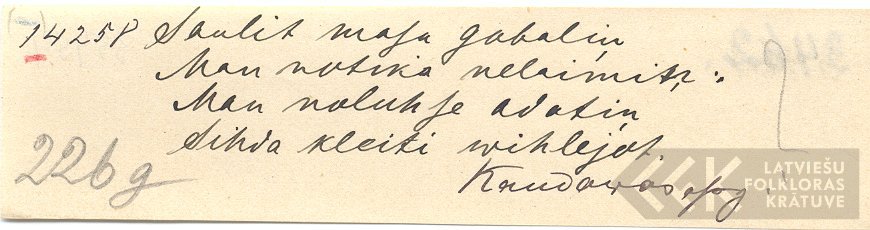 14258 Saulit masa gabaliņ
Man notika nelaimītę:
Man noluhse adatiņ
Sihda kleiti wihlejot.
Kandawas apg.
226 g
LATVIEŠU
FOLKLORAS
KRĀTUVE